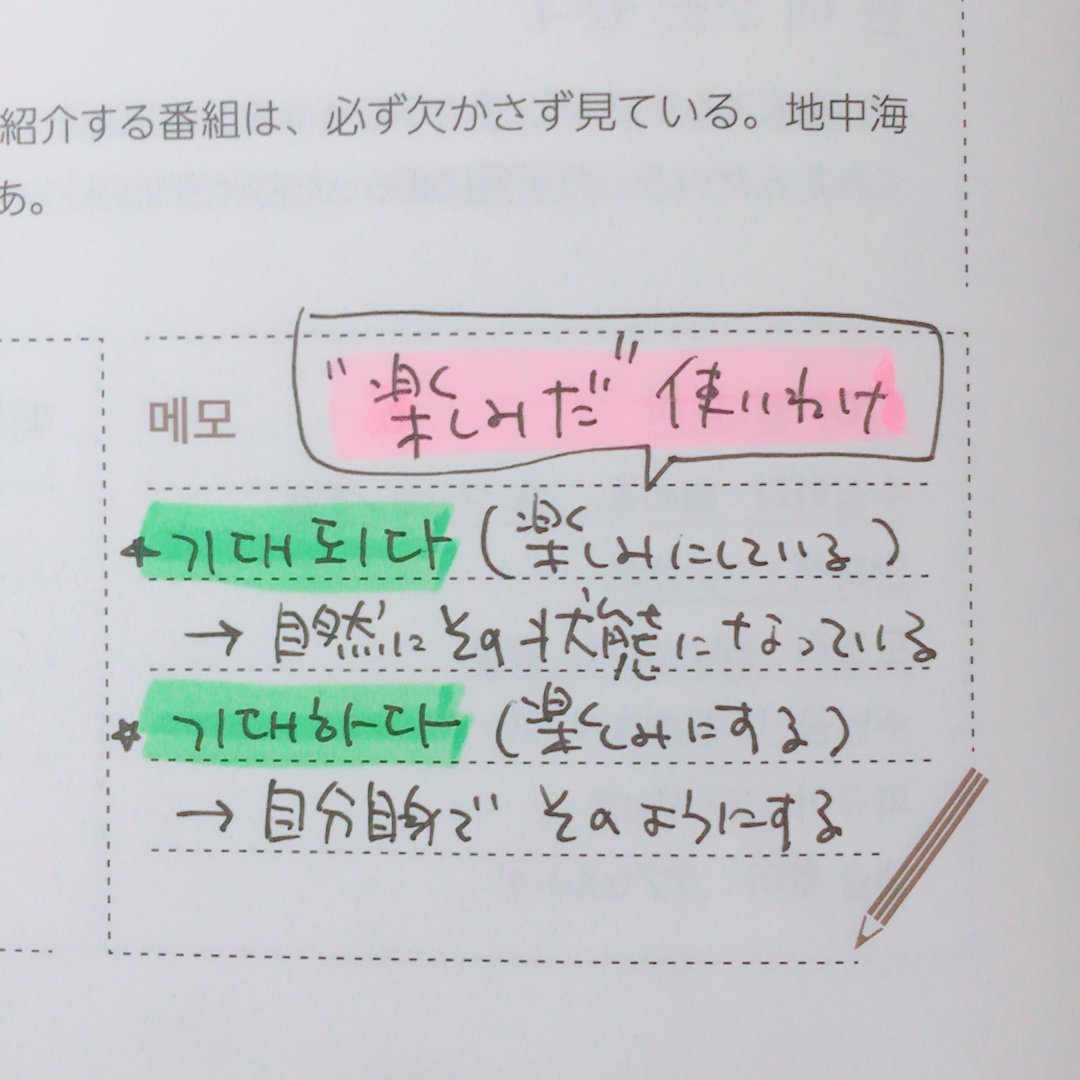 紹介する番組は、必ず欠かさず見ている。地中海
あ。
"楽しみだ" 使いわけ
메모
기대되다 (楽しみにしている)
→ 自然にその状態になっている
☆ 기대하다 (楽しみにする)
→ 自分自身で そのようにする